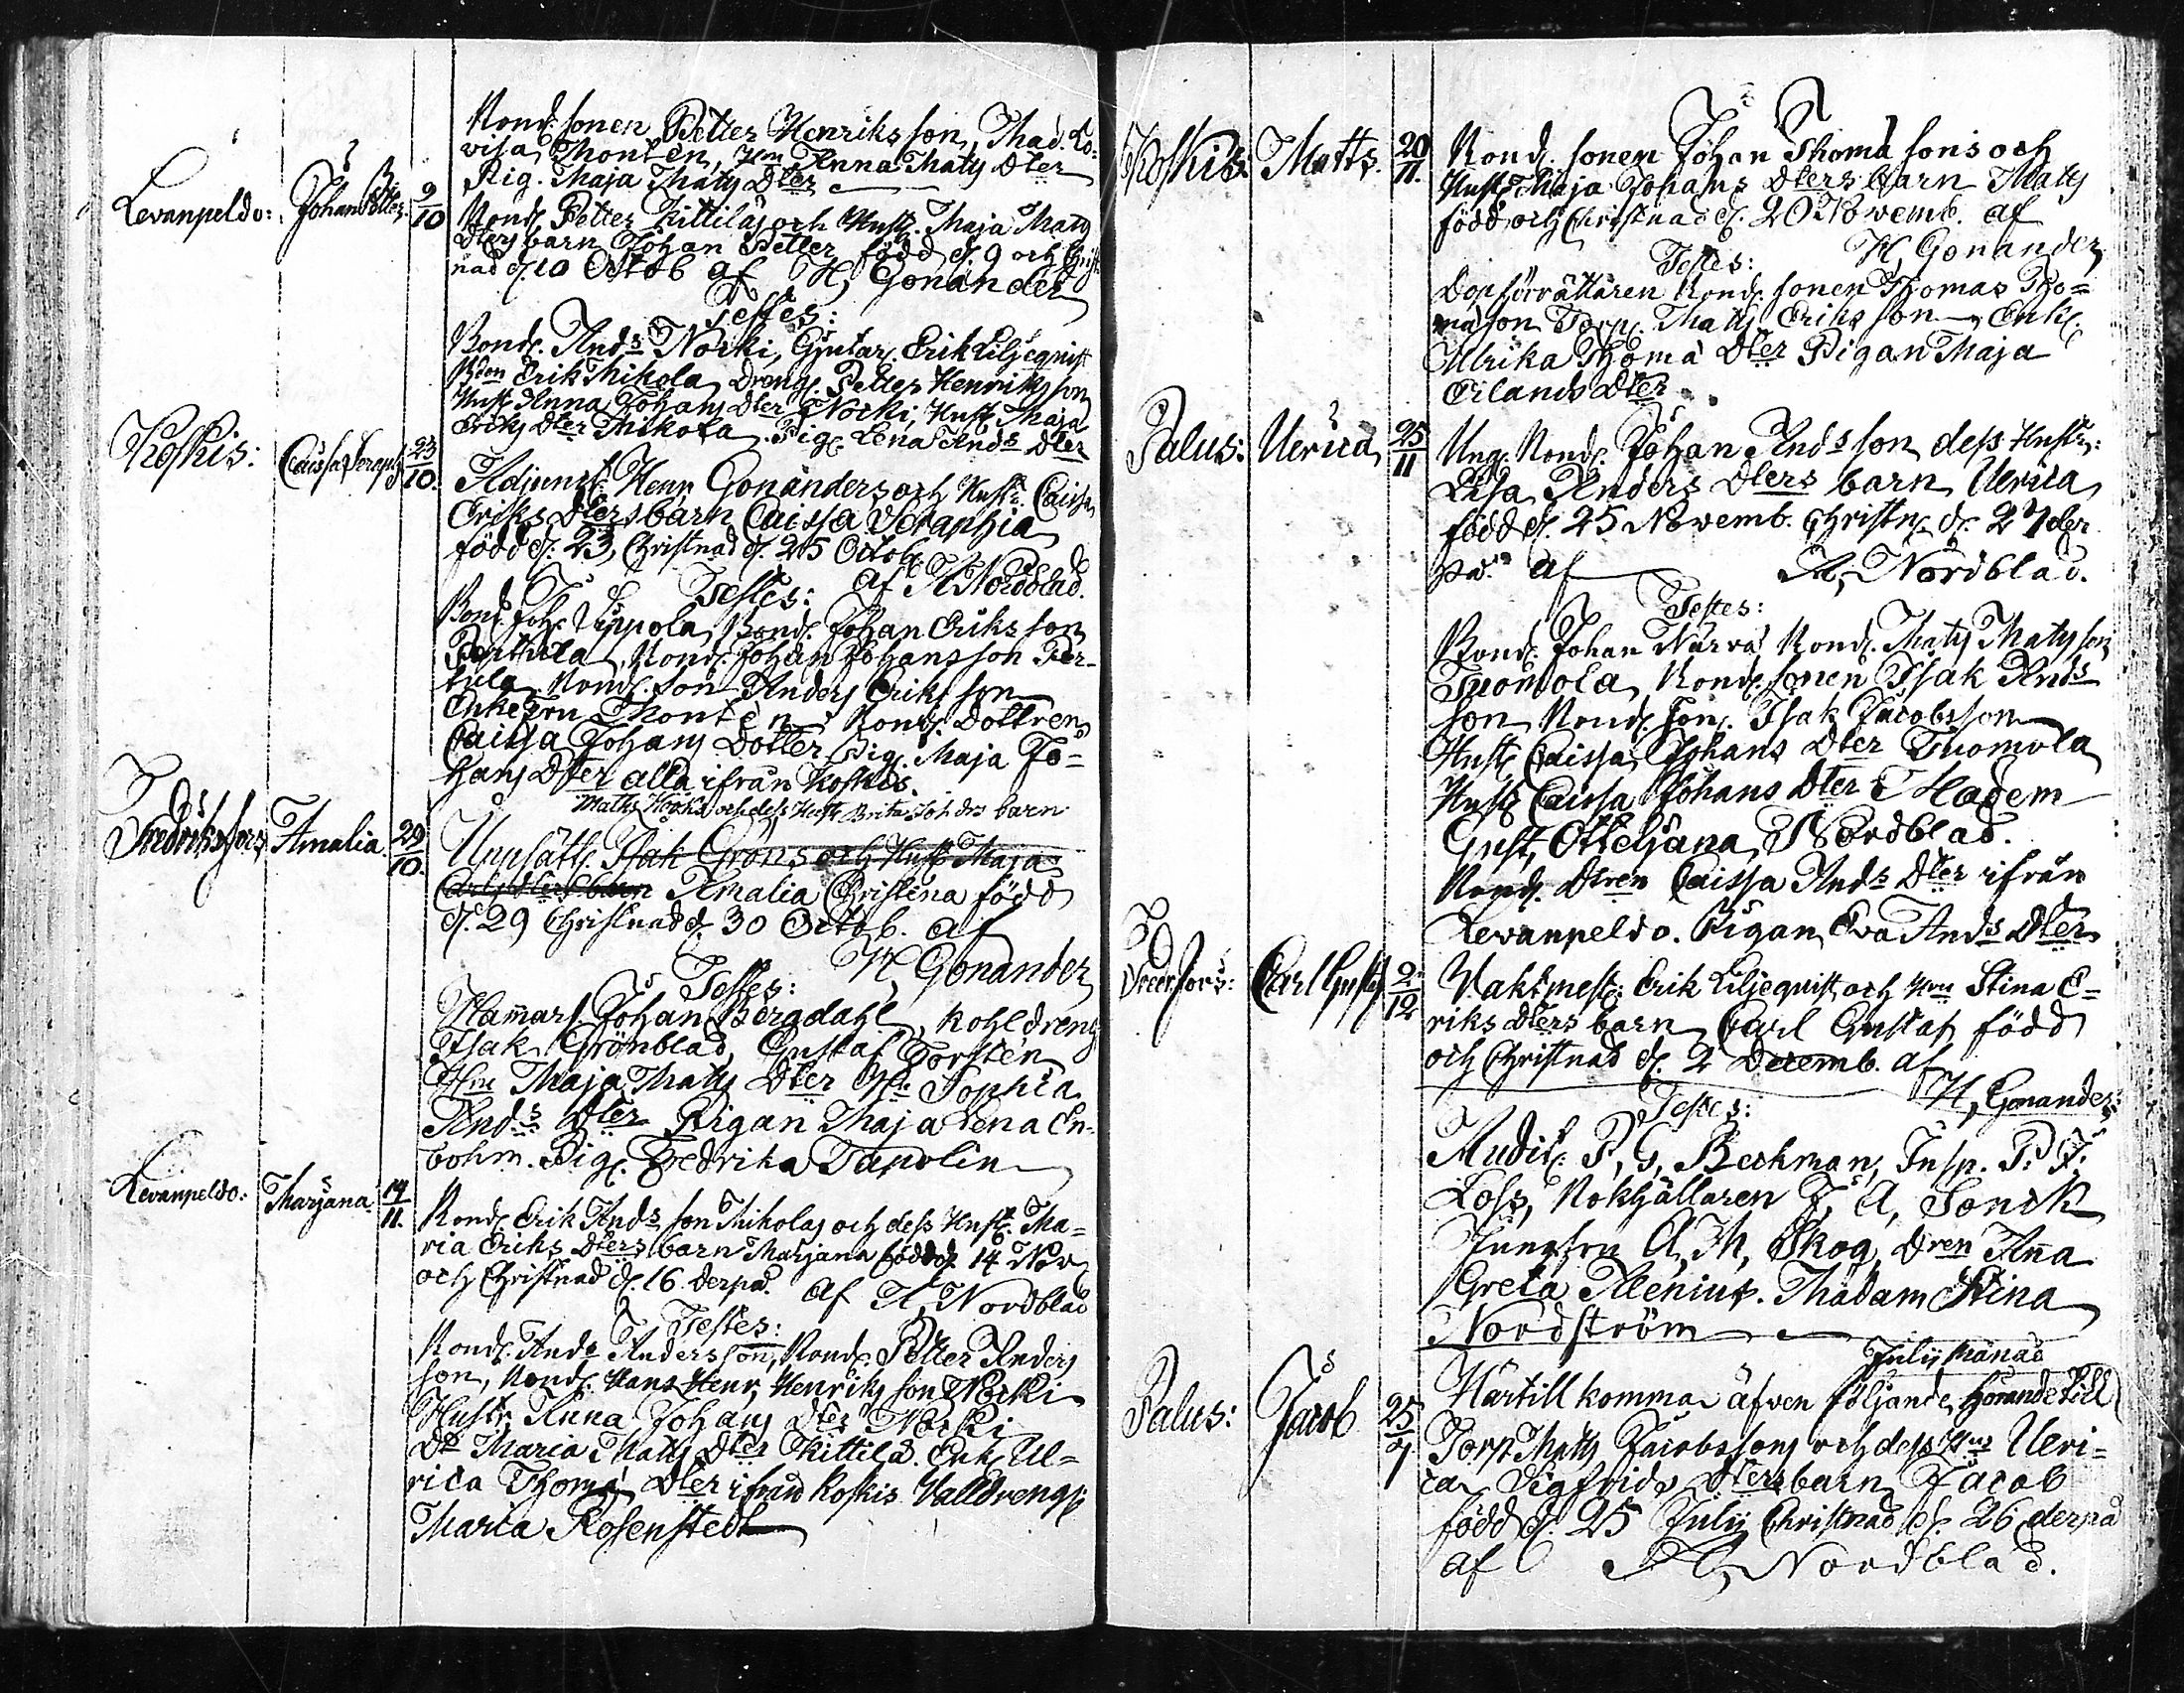 Bond. Sonen Petter Henriks son, Mad. Lo-
visa Thontén, Hm Anna Mats Dter
Pig. Maja Mats Dter
Levanpeldo: Johan Petter 9/10 Bond. Petter Kittilas och Hustr. Maja Mats
Dters barn Johan Petter född d. 9 och Christ-
nad d. 10 Octob af H, Gonander
Testes:
Bond. And:s Norki, Gjutar. Erik Liljeqvist
Bdon Erik Mikola, Dreng. Petter Henriks son
Hust Anna Johans Dter Norki, Hust. Maja
Eriks Dter Mikola. Pig. Lena And:s Dter
Koskis: Caissa Seraph 23/10. Adjunct. Henr Gonanders och Hustr. Caissa
Eriks Dters barn Caissa Seraphia
född d. 23, Christnad d. 25 Octob.
Testes: af A Nordblad.
Bond. Joh. Sippola, Bond. Johan Eriks son
Perttula, Bond. Johan Johansson Per-
tula Bond. Son Anders Eriks son
Enkefru Thontén, Bond. Dottren
Caissa Johans Dotter, Pig. Maja Jo-
hans Dter alla ifrån Koskis.
Maths Hööks och dess Hustr Brita Joh drs barn
Fredriksfors Amalia 29/10. Uppsätt. Isak Gröns och Hust Maja
Carls Dters barn Amalia Christina född
d. 29 Christnad d. 30 Octob. af
H Gonander
Testes:
Hammars. Johan Bergdahl, Kohldreng
Isak Grönblad, Gustaf Torstén
Hm Maja Mats Dter Hu Sophia
And:s Dter Pigan Maja Lena En-
bohm. Pig. Fredrika Tapolin
Levanpeldo: Marjana 14/11. Bond. Erik And:s son Mikolas och dess Hust. Ma-
ria Eriks Dters barn Marjana född d. 14 Nov
och Christnad d. 16 derpå. af A, Nordblad
Testes:
Bond. And:s Andersson, Bond. Petter Anders
son, Bond. Hans Henr, Henriks son Norki
Hustr. Anna Johans Dter Norki
Do Maria Mats Dter Kittilä. Enk. Ul-
rica Thoma Dter ifrån Koskis Valldrengs.
Maria Rosenstedt
Koskis: Matts. 20/11. Bond. sonen Johan Thoma sons och
Hust. Maja Johans Dters barn Mats
född och Christnad d. 20 Novemb. af
Testes: H, Gonander,
Dopförrättaren Bond. sonen Thomas Tho-
mason Torp. Mats Eriks son Enk.
Ulrika Thoma Dter Pigan Maja
Erlands Dter
Palus: Ulrica 25/11 Ung. Bond. Johan And:s son dess Hustr:
Lisa Anders Dters barn Ulrica
född d. 25 Novemb. Christn. d. 27 der
på. af A, Nordblad.
Testes:
Bond. Johan Närvä Bond. Mats Mats son
Tuomola, Bond. sonen Isak And:s
son Bond. Son. Isak Jacobsson
Hust. Caissa Johans Dter Tuomola
Hust Caissa Johans Dter Madem
Gust, Otteljana, Nordblad.
Bond. Dtren Caissa And:s Dter ifrån
Levanpeldo. Pigan Eva And:s Dter
Carl Gustaf 2/12 Vaktmest: Erik Liljeqvist och Hru Stina E-
riks Dters barn Carl Gustaf född
och Christnad d. 2 Decemb. af
Testes: H, Gonander.
Audit: P, G, Beckman, Insp. P. F.
Loss, Bokhållaren J, A, Sonck
Jungfru A, M, Skog, Dren Anna
Greta Alenius. Madam Stina
Nordström
Julij Månad
Palus: Jacob 25/7 Härtill komma äfven följande, hörande till
Torp Mats Jacobssons och dess Hus Ulri-
ca Sigfrids Dters barn Jacob
född d. 25 Julij Christnad d. 26 derpå
af A, Nordblad.